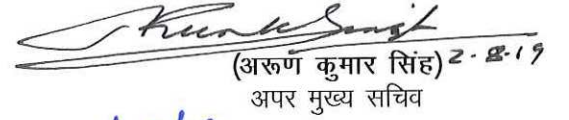 (अरूण कुमार सिंह) 2-8-19
अपर मुख्य सचिव